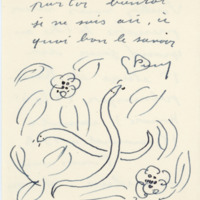 partir bientôt
je ne sais où, à
quoi bon le savoir